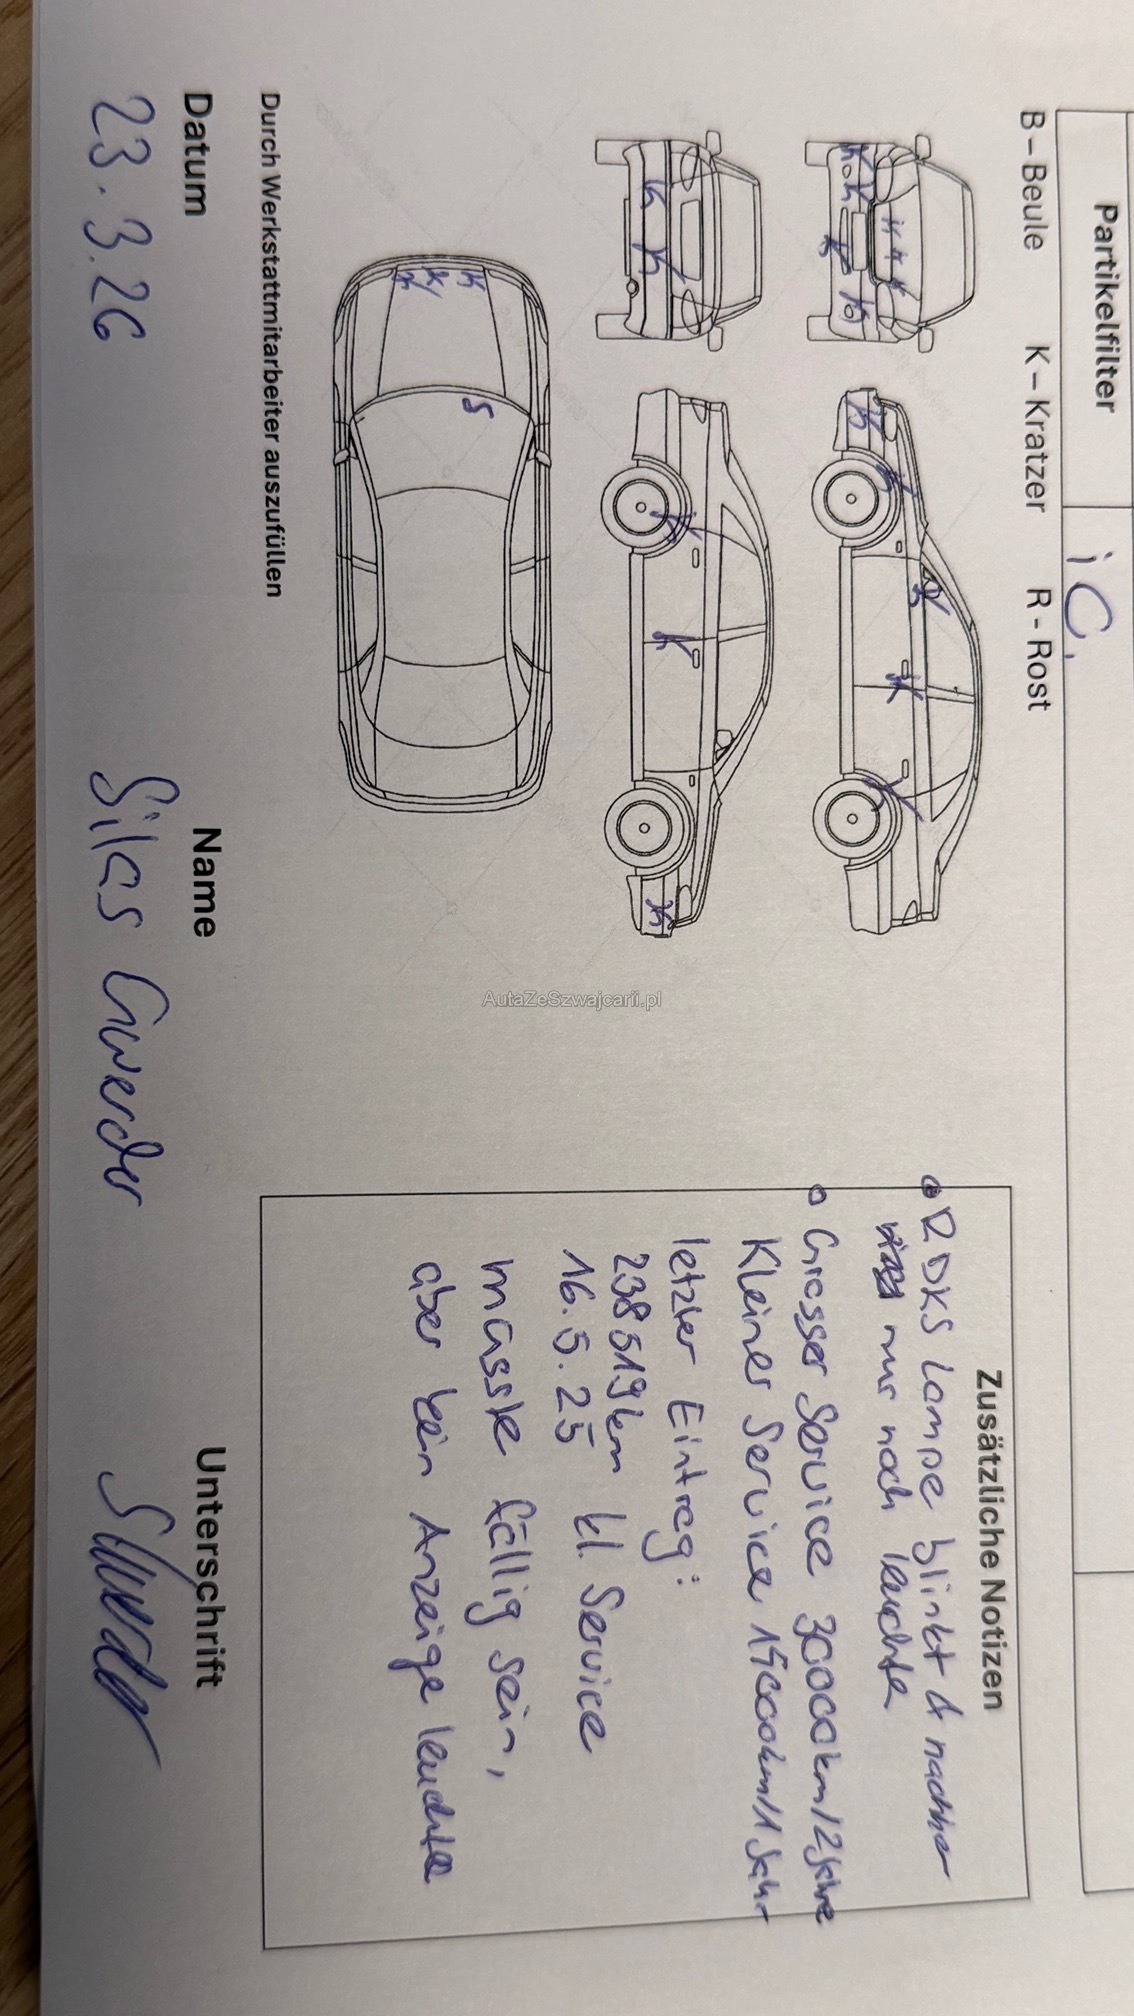 Partikelfilter i.O.
B – Beule K – Kratzer R - Rost
K K K
K K
K K
K K
K K
K K K K K
K K K
K
K K K
S
Zusätzliche Notizen
RDKS Lampe blinkt & nachher
nur noch leuchte
Grosser Service 30000km/2Jahre
Kleiner Service 15000km/1Jahr
letzter Eintrag:
238519km kl. Service
16.5.25
müsste fällig sein,
aber kein Anzeige leuchtet
Durch Werkstattmitarbeiter auszufüllen
Datum Name Unterschrift
23.3.26 Silas Gwerder
AutaZeSzwajcarii.pl